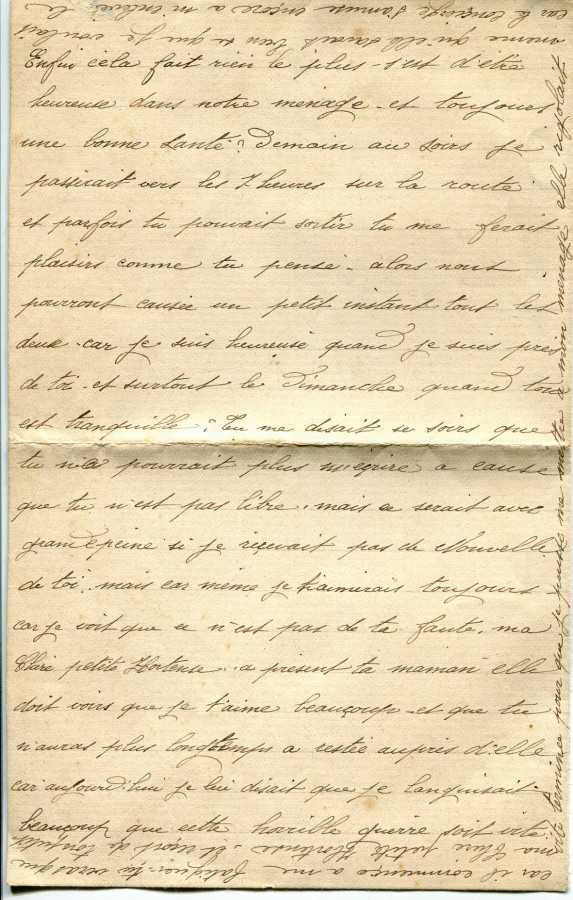 Enfin cela fait rien le plus - s'est d'être
heureuse dans notre menage - et toujours
une bonne santé? Demain au soirs je
passerait vers les 7 heures sur la route
et parfois tu pouvait sortir tu me ferait
plaisirs comme tu pense - alors nous
pourront causée un petit instant tout les
deux - car je suis heureuse quand je suis près
de toi - et surtout le Dimanche quand tout
est tranquille; Tu me disait se soirs que
tu n'a pourrait plus m'ecrire a cause
que tu n'est pas libre. mais ce serait avec
grand peine si je reçevait pas de Nouvelle
de toi. mais car même je t'aimerais toujours -
car je voit que ce n'est pas de ta faute. ma
Chère petite Hortense. a present ta maman elle
doit voirs que je t'aime beaucoup - et que tu
n'auras plus longtemps a restée auprès d'elle
car aujourd'hui je lui disait que je languisait
beaucoup que cette horrible guerre soit vite
vite terminée pour que je puisse me mettre a mon menage elle rigolait
car la concierge s'amuse encore a m'enlevé le